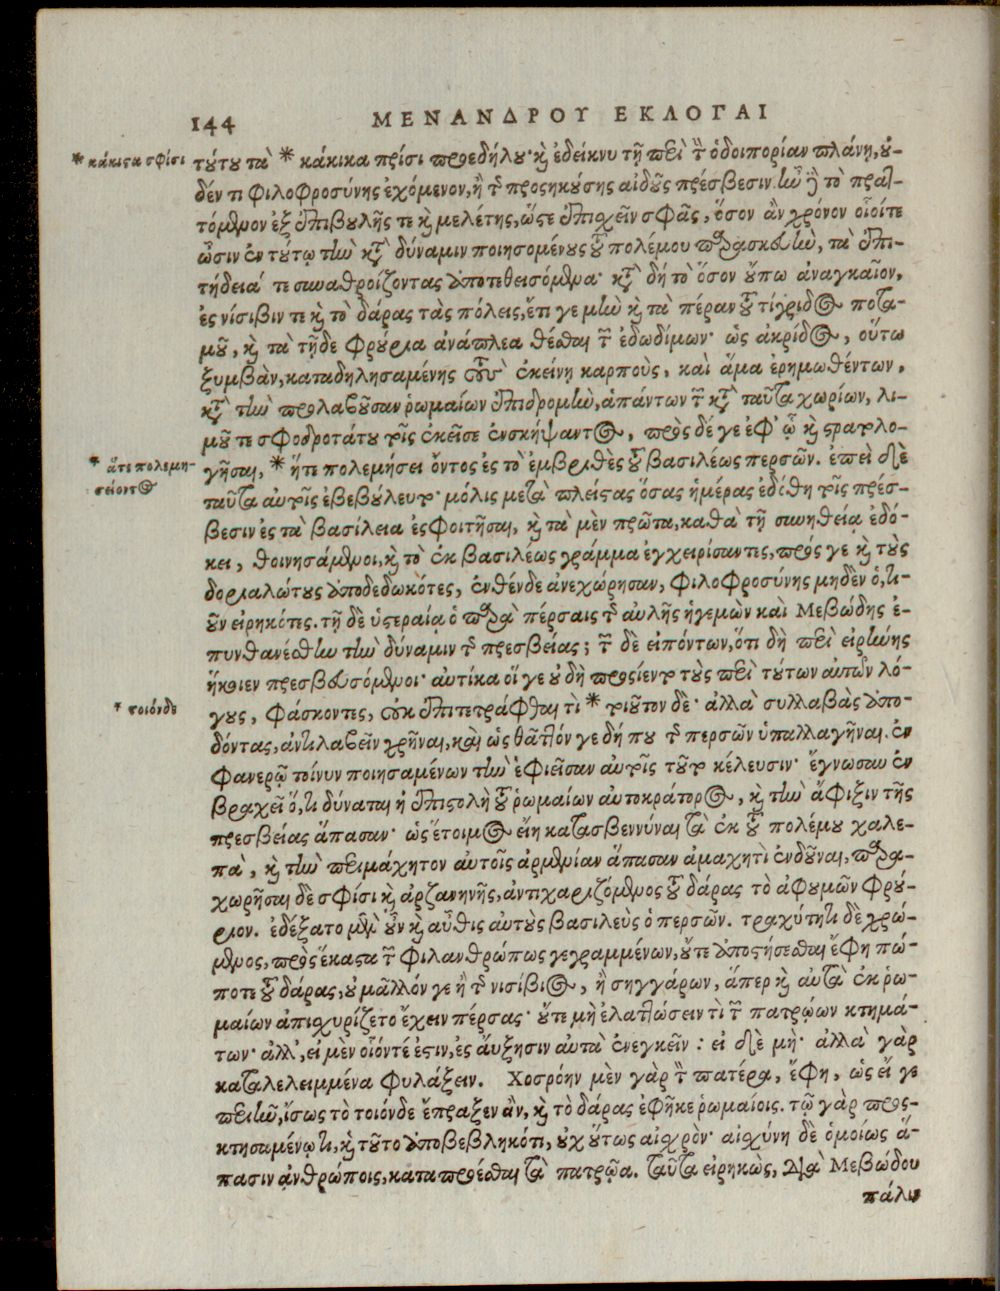 144 ΜΕΝΑΝΔΡΟΥ ΕΚΛΟΓΑΙ
* κάκιστα σφίσι
τούτου τὰ * κάκικα πρίσι προεδήλου· καὶ ἐδείκνυ τῇ περὶ τὴν ὁδοιπορίαν πλάνῃ, οὐ-
δέν τι φιλοφροσύνης ἐχόμενον, ἢ τῆς προσηκούσης αἰδοῦς πρέσβεσιν. ἦν δὲ τὸ πρατ-
τόμενον ἐξ ἐπιβουλῆς τε καὶ μελέτης, ὥστε ἐπισχεῖν σφᾶς, ὅσον ἂν χρόνον οἷοίτε
ὦσιν ἐν τούτῳ τὴν κατὰ δύναμιν ποιησομένους τοῦ πολέμου παρασκευὴν, τὰ ἐπι-
τήδειά τε συναθροίζοντας ὑποτεθεισόμενα· κατὰ δὴ τὸ ὅσον οὔπω ἀναγκαῖον,
ἐς νίσιβιν τε καὶ τὸ δάρας τὰς πόλεις, ἔτι γε μὴν καὶ τὰ πέραν τοῦ τίγριδος ποτα-
μοῦ, καὶ τὰ τῇδε φρούρια ἀνάπλεα θέσθαι τῶν ἐδωδίμων· ὡς ἀκρίδος, οὕτω
ξυμβὰν, καταδηλησαμένης τοὺς ἐκείνῃ καρποὺς, καὶ ἅμα ἐρημωθέντων,
κατὰ τὴν προλαβοῦσαν ῥωμαίων ἐπιδρομὴν, ἁπάντων τῶν κατὰ ταῦτα χωρίων, λι-
μοῦ τε σφοδροτάτου τοῖς ἐκεῖσε ἐνσκήψαντος, πρὸς δέ γε ἐφ' ᾧ καὶ στρατολο-
* ἅτε πολεμη-
σείοντος
γῆσαι, * ἥτε πολεμήσει ὄντος ἐς τὸ ἐμβριθὲς τοῦ βασιλέως περσῶν. ἐπεὶ δὲ
ταῦτα αὐτοῖς ἐβεβούλευτο· μόλις μετὰ πλείστας ὅσας ἡμέρας ἐδόθη τοῖς πρέσ-
βεσιν ἐς τὰ βασίλεια ἐσφοιτῆσαι, καὶ τὰ μὲν πρῶτα, καθὰ τῇ συνηθείᾳ ἐδό-
κει, θοινησάμενοι, καὶ τὸ ἐκ βασιλέως γράμμα ἐγχειρίσαντες, πρός γε καὶ τοὺς
δοριαλώτους ἀποδεδωκότες, ἐνθένδε ἀνεχώρησαν, φιλοφροσύνης μηδὲν ὁ,τι-
οῦν εἰρηκότες. τῇ δὲ ὑστεραίᾳ ὁ παρὰ πέρσαις τῆς αὐλῆς ἡγεμὼν καὶ Μεβώδης ἐ-
πυνθανέσθην τὴν δύναμιν τῆς πρεσβείας; τῶν δὲ εἰπόντων, ὅτι δὴ περὶ εἰρήνης
ἥκοιεν πρεσβευσόμενοι· αὐτίκα οἵγε οὐδὴ προσίεντο τοὺς περὶ τούτων αὐτῶν λό-
* τοιόνδε
γους, φάσκοντες, οὐκ ἐπιτετράφθαι τὶ * τοιοῦτον δε· ἀλλὰ συλλαβὰς ἀπο-
δόντας, ἀντιλαβεῖν χρῆναι, καὶ ὡς θᾶττόν γε δή που τῆς περσῶν ὑπαλλαγῆναι. ἐν
φανερῷ τοίνυν ποιησαμένων τὴν ἐφιεῖσαν αὐτοῖς τοῦτο κέλευσιν· ἔγνωσαν ἐν
βραχεῖ ὅ,τι δύναται ἡ ἐπιστολὴ τοῦ ῥωμαίων αὐτοκράτορος, καὶ τὴν ἄφιξιν τῆς
πρεσβείας ἅπασαν· ὡς ἕτοιμος εἴη κατασβεννύναι τὰ ἐκ τοῦ πολέμου χαλε-
πὰ, καὶ τὴν περιμάχητον αὐτοῖς ἀρμενίαν ἅπασαν ἀμαχητὶ ἐνδοῦναι, παρα-
χωρῆσαι δὲ σφίσι καὶ ἀρζανηνῆς, ἀντιχαριζόμενος τοῦ δάρας τὸ ἀφυμῶν φρού-
ριον. ἐδέξατο μὲν οὖν καὶ αὖθις αὐτοὺς βασιλεὺς ὁ περσῶν. τραχύτητι δὲ χρώ-
μενος, πρὸς ἕκαστα τῶν φιλανθρώπως γεγραμμένων, οὔτε ἀποστήσεσθαι ἔφη πώ-
ποτε τοῦ δάρας, οὐ μᾶλλόν γε ἢ τῆς νισίβιος, ἢ σηγγάρων, ἅπερ καὶ αὐτὰ ἐκ ῥω-
μαίων ἀπισχυρίζετο ἔχειν πέρσας· οὔτε μὴ ἐλαττώσειν τὶ τῶν πατρῴων κτημά-
των· ἀλλ', εἰ μὲν οἷόντέ ἐστιν, ἐς αὔξησιν αὐτὰ ἐνεγκεῖν : εἰ δὲ μὴ· ἀλλὰ γὰρ
καταλελειμμένα φυλάξειν. Χοσρόην μὲν γὰρ τὸν πατέρα, ἔφη, ὡς εἴ γε
περιῆν, ἴσως τὸ τοιόνδε ἔπραξεν ἂν, καὶ τὸ δάρας ἐφῆκε ῥωμαίοις. τῷ γὰρ προσ-
κτησαμένῳ τι, καὶ τοῦτο ἀποβεβληκότι, οὐχ οὕτως αἰσχρὸν· αἰσχύνη δὲ ὁμοίως ἅ-
πασιν ἀνθρώποις, καταπροέσθαι τὰ πατρῷα. ταῦτα εἰρηκὼς, διὰ Μεβώδου
πάλιν